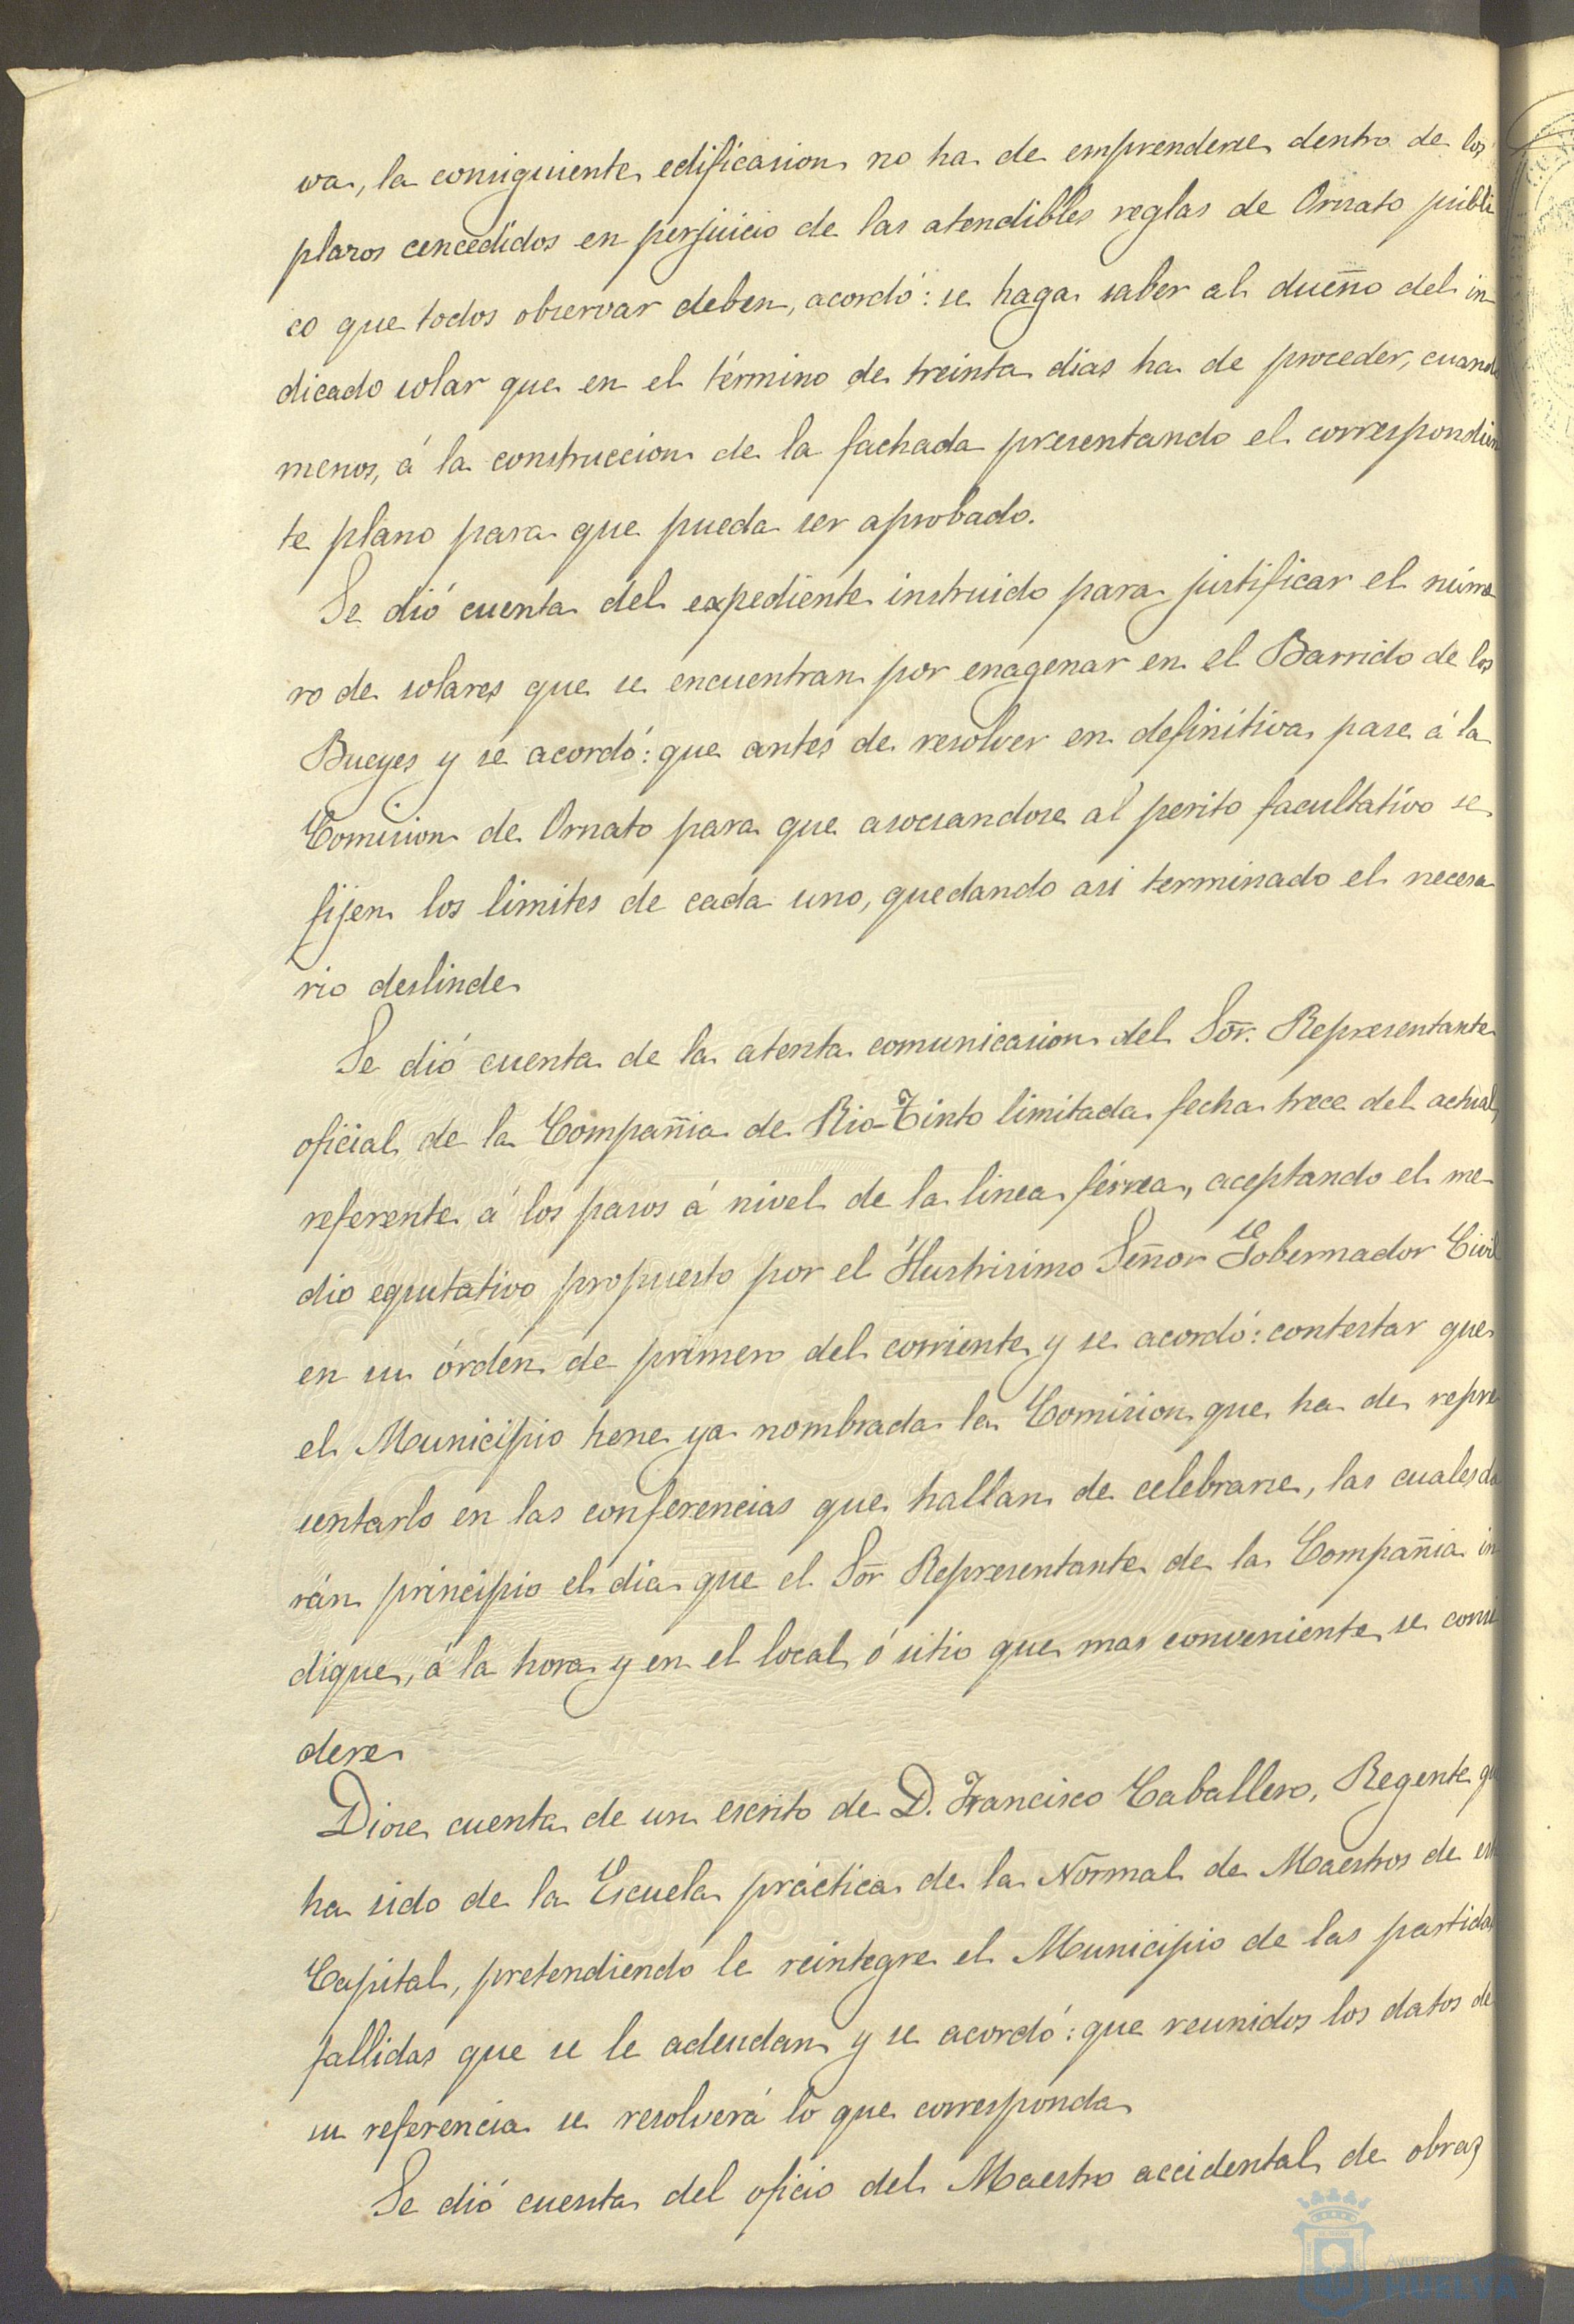 va, la consiguiente edificasion no ha de emprenderse dentro de los
plazos cencedidos en perjuicio de las atendibles reglas de Ornato públi
co que todos observar deben, acordó: se haga saber al dueño del in
dicado solar que en el término de treinta dias ha de proceder, cuando
menos, á la construccion de la fachada presentando el correspondien
te plano para que pueda ser aprobado.
Se dió cuenta del expediente instruido para justificar el núme
ro de solares que se encuentran por enagenar en el Barrido de los
Bueyes y se acordó: que antes de resolver en definitiva pase á la
Comision de Ornato para que asociandose al perito facultativo se
fijen los limites de cada uno, quedando asi terminado el necesa
rio deslinde
Se dió cuenta de la atenta comunicasion del Sor. Representante
oficial de la Compañia de Rio-Tinto limitada fecha trece del actual,
referente á los pasos á nivel de la linea férrea, aceptando el me
dio equitativo propuesto por el Ilustrisimo Señor Gobernador Civil
en su órden de primero del corriente y se acordó: contestar que
el Municipio tiene ya nombrada la Comision que ha de repre
sentarlo en las conferencias que hallan de celebrarse, las cuales da
rán principio el dia que el Sor Representante de la Compañia in
dique, á la hora y en el local ó sitio que mas conveniente se consi
dere
Diose cuenta de un escrito de D. Francisco Caballero, Regente que
ha sido de la Escuela práctica de la Normal de Maestros de esta
Capital, pretendiendo le reintegre el Municipio de las partidas
fallidas que se le adeudan y se acordó: que reunidos los datos de
su referencia se resolverá lo que corresponda
Se dió cuenta del oficio del Maestro accidental de obras
HUELVA